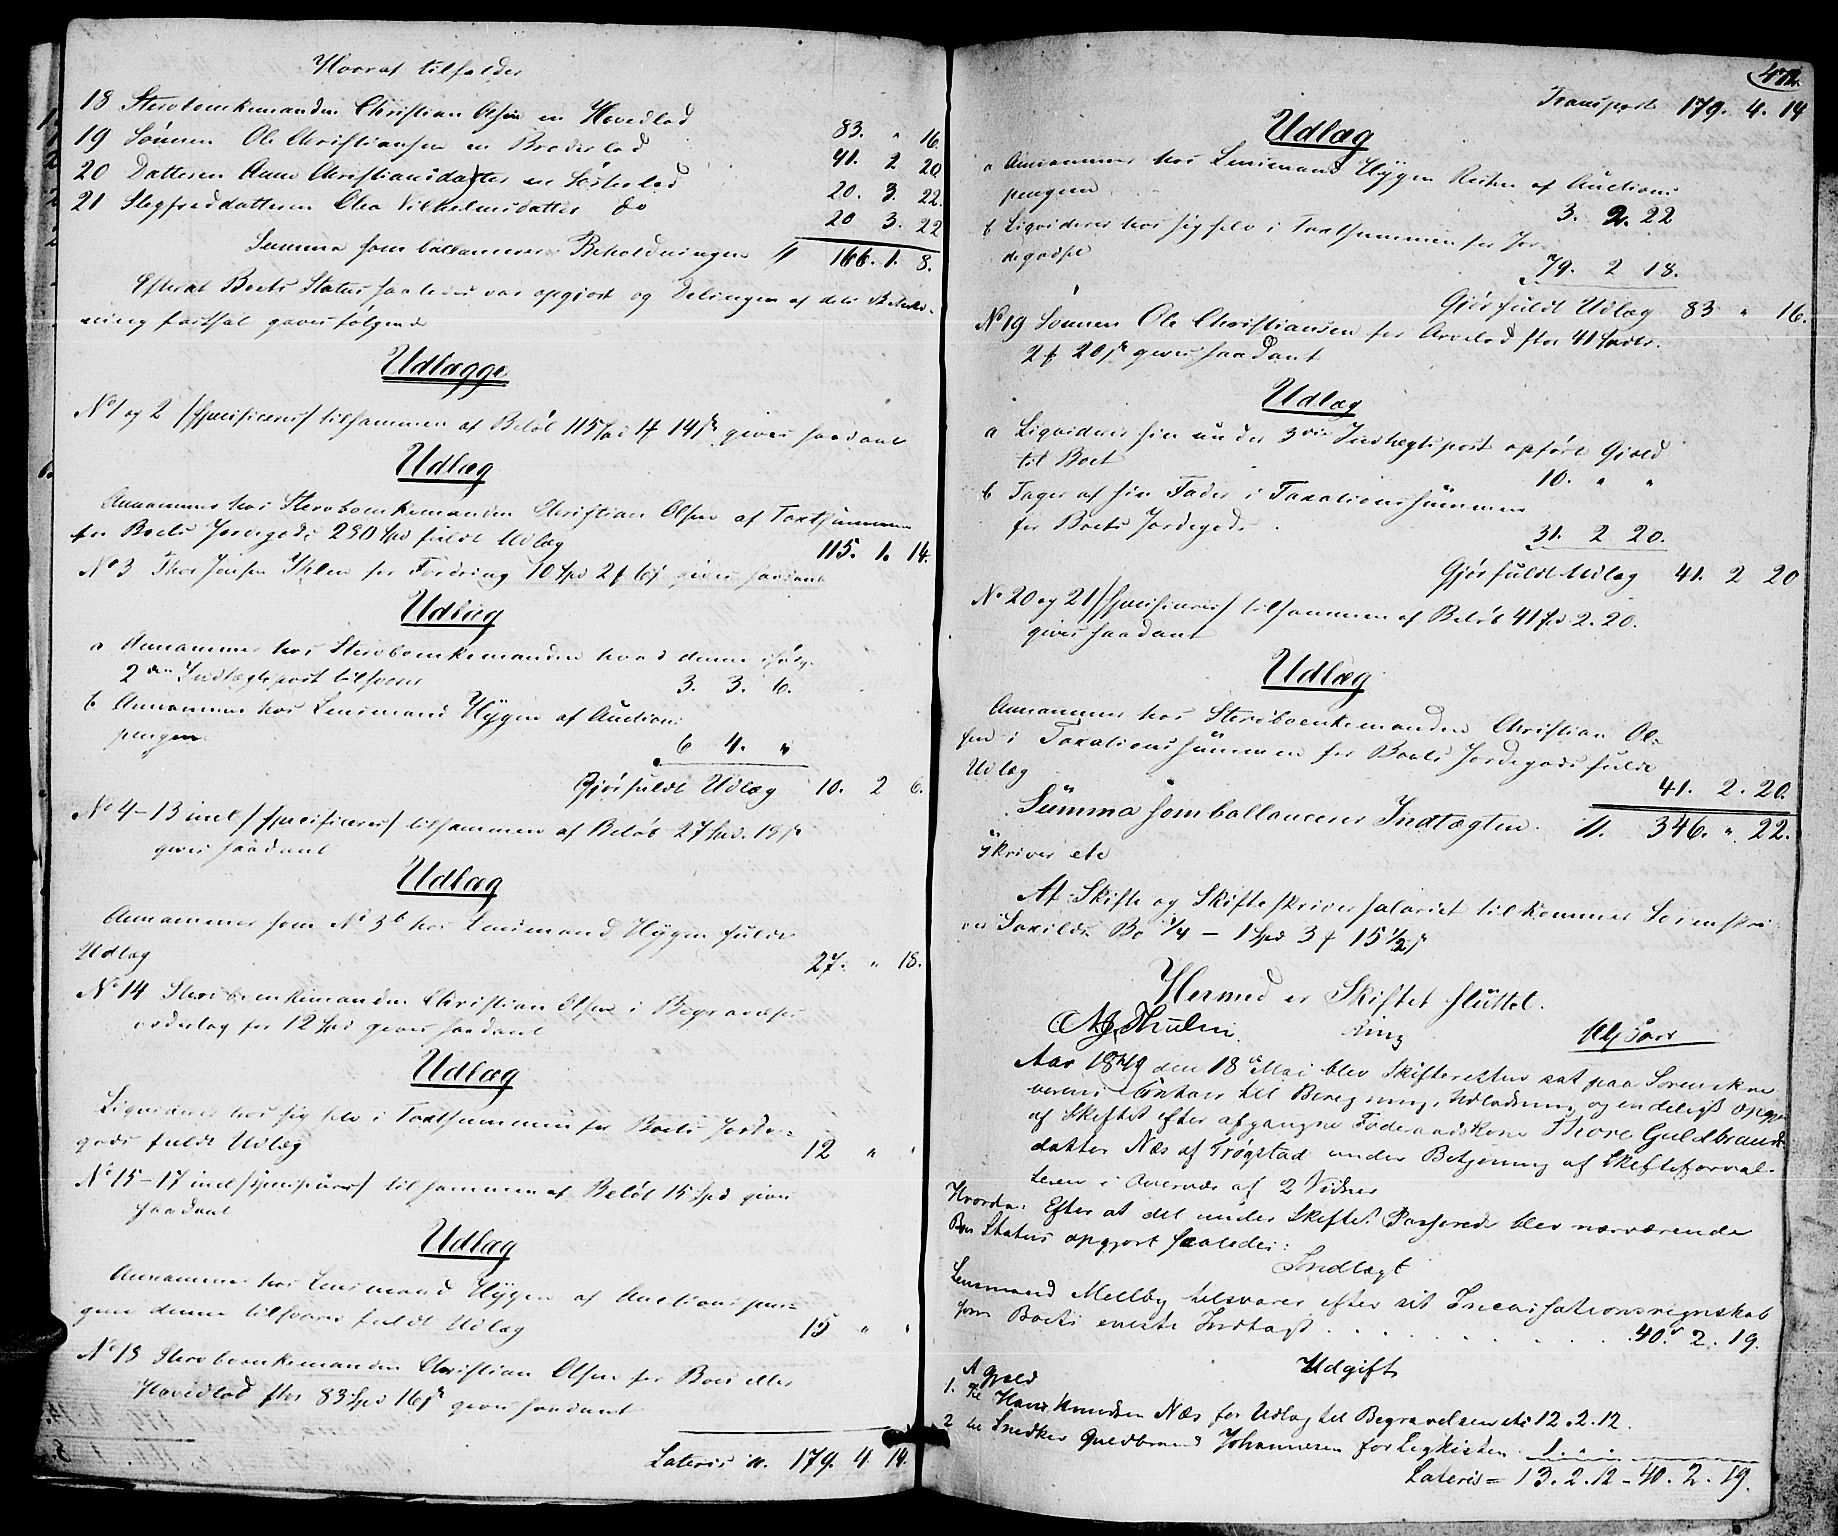 Hvoraf tilfalder
18 Sterboenkemanden Christian Olsen en Hovedlod 83. " 16.
19 Sønnen Ole Christiansen en Broderlod 41. 2 20
20 Datteren Anne Christiansdatter en Søsterlod 20. 3. 22.
21 Stegfreddatteren Olea Vilhelmsdatter do 20 3. 22
Summa som ballancerer Beholdningen // 166. 1. 8.
Efterat Boets Status saaledes var opgjort og Delingen af dets Behold-
ning fastsat gaves følgende
Udlægge
No 1 og 2 /specificeres/ tilsammen af Beløb 115 Spd 1 f 14 s gives saadant
Udlæg
Annammes hos Sterboenkemanden Christian Olsen af Taxtsummen
for Boets Jordegods 290 Spd fuldt Udlæg 115. 1. 14.
No 3 Thor Jensen for Fordring 10 Spd 2 f 6 s gives saadant
Udlæg
a Annammes hos Sterboenkemanden hvad denne
2den Indtægtspost tilsvarer 3. 3. 6.
b Annammes hos Lensmand Hÿgen af Auctions
pengene 6 4. "
Gjør fuldt Udlæg 10. 2 6.
No 4-13 incl /specificeres/ tilsammen af Beløb 27 Spd. 18 s
gives saadant
Udlæg
Annammes som No 3b hos Lensmand Hÿgen fuldt
Udlæg 27. " 18.
No 14 Sterboenkemanden Christian Olsen i Begravelses
vederlag for 12 Spd gives saadant
Udlæg
Liqvideres hos sig selv i Taxtsummen for Boets Jorde-
gods fuldt Udlæg 12 " "
No 15-17 incl /specificeres/ tilsammen af Beløb 15 Spd gives
saadant
Udlæg
Annammes hos Lensmand Hÿgen af Auctionspen-
gene denne tilsvarer fuldt Udlæg 15 " "
No 18 Sterboenkemanden Christian Olsen for Boes eller
Hovedlod stor 83 Spd 16 s gives saadant
Lateris // 179. 4 14.
472.
Transport 179. 4. 14
Udlæg
a Annammes hos Lensmand Hÿgen Resten af Auctions
pengene 3. 2. 22
b Liqvideres hos sig selv i Taxtsummen for Jor-
degodset 79. 2 18.
Gjør fuldt Udlæg 83 " 16.
No 19 Sønnen Ole Christiansen for Arvelod stor 41 Spdr.
2 f 20 s gives saadant
Udlæg
a Liqviderer sin under 3die Indtægtspost opført Gjæld
til Boet 10. " "
b Tager af sin Fader i Taxationssummen
for Boets Jordegods 31. 2 20.
Gjør fuldt Udlæg 41. 2 20
No 20 og 21 /specificeres/ tilsammen af Beløb 41 Spd. 2. 20.
gives saadant
Udlæg
Annammes hos Sterboenkemanden Christian Ol-
sen i Taxationssummen for Boets Jordegods fuldt
Udlæg 41. 2. 20.
Summa som ballancerer Indtægten // 346. " 22.
skriver etc
Af Skifte og Skifteskriversalariet tilkommer Sorenskri-
ver Saxilds Bo 1/4 - 1 Spd 3 f 15 1/2 s
Hermed er Skiftet sluttet.
Thulin. Ring
Aar 1849 den 18 Mai blev Skifteretten sat paa Sorenskri
verens Contoir til Beregning, Udlodning og endeligt Opgjør
af Skiftet efter afgangne Føderaadskone Thore Guldbrands
datter Næs af Trøgstad under Betjening af Skifteforval-
teren i Overvær af 2 Vidner
Hvorda: Efter at det under Skiftet Passerede blev nærværende
Boes Status opgjort saaledes:
Indtægt
Lensmand Mellby tilsvarer efter sit Incassationsregnskab
som Boets eneste Indtægt . . . 40. 2. 19.
Udgift
A Gjæld
1. Til Hans Knudsen Næs for Udlæg til Begravelsen etc 12. 2. 12.
2 til Snedker Guldbrand Johannesen for Ligkisten 1. " "
Lateris = 13. 2. 12 - 40. 2. 19.